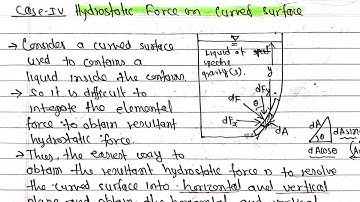 Case-IV Hydrostatic Force on Curved Surface
→ Consider a curved surface
used to contains a
liquid inside the contains.
→ So it is difficult to
integrate the elemental
force to obtain resultant
hydrostatic force.
→ Thus, the easiest way to
obtain the resultant hydrostatic force is to resolve
the curved surface into horizontal and vertical
plane and obtain the horizontal and vertical
Liquid of
specific
gravity (s).
y
dFy
dF
θ
dFx
dA
dA
θ
dAsinθ
dAcosθ